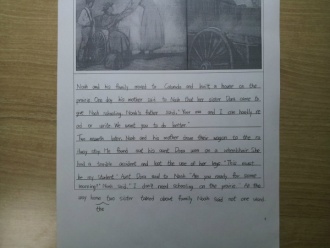 Noah and his family moved to Colorado and built a house on the
prairie. One day his mother said to Noah that her sister Dora come to
give Noah schooling. Noah's father said, "Your ma and I can hardly at
all or write. We want you to do better."
Two months later, Noah and his mother drove their wagon to the
away stop. He found out his aunt Dora were on a wheelchair. She
had a terrible accident and lost the use of her legs. "This must
be my student." Aunt Dora said to Noah. "Are you ready for some
learning?" Noah said, "I don't need schooling on the prairie." All the
way home two sister talked about family. Noah said not one word
the